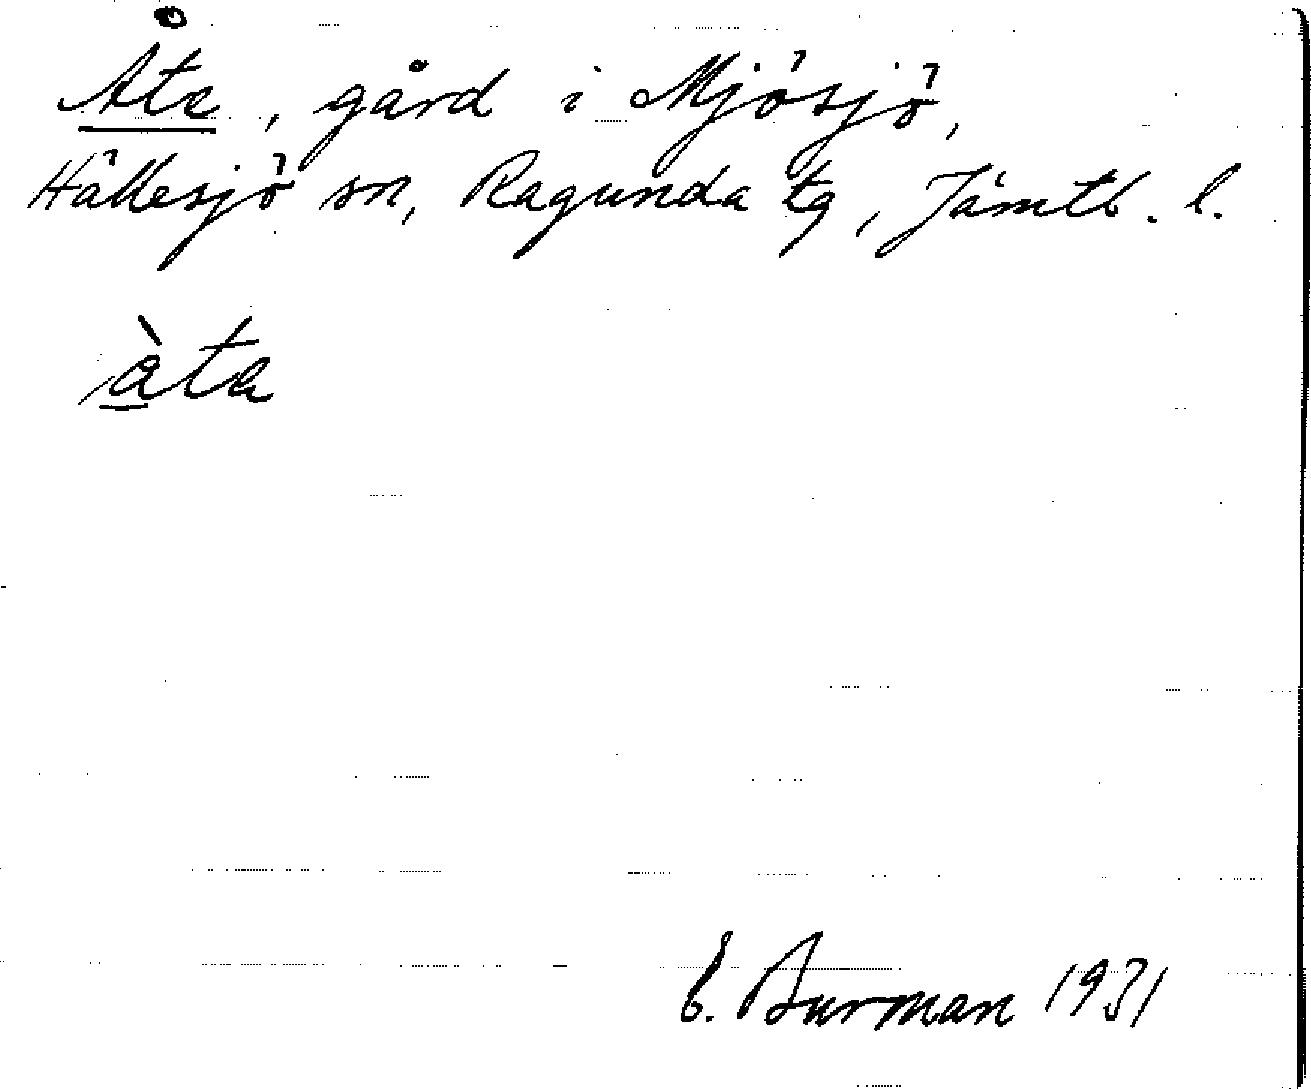 Åte, gård i Mjösjö,
Hällesjö sn, Ragunda tg, Jämtl. l.
àta
E. Burman 1931